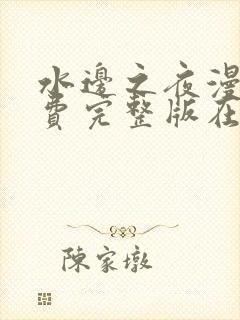 水邊之夜漫
費完整版在
陳家墩